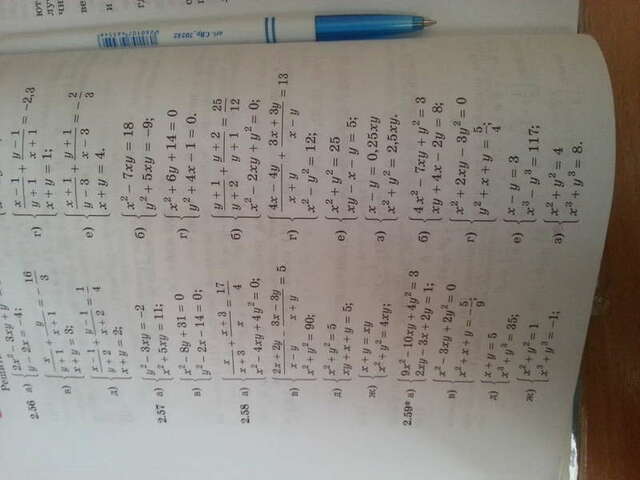 2.56 а) { 2x² − 3xy + y
y − 2x = −4;
г) { (x − 1)/(y + 1) + (y − 1)/(x + 1) = −2,3
x + y = 1;
в) { x/(y + 1) + y/(x + 1) = −16/3
x + y = 3;
е) { (x + 1)/(y − 3) + (y + 1)/(x − 3) = −2/3
x + y = 4.
д) { (x − 1)/(y + 2) + (y − 1)/(x + 2) = 1/4
x + y = 2;
2.57 а) { y² − 3xy = −2
x² + 5xy = 11;
б) { x² − 7xy = 18
y² + 5xy = −9;
в) { x² − 8y + 31 = 0
y² − 2x − 14 = 0;
г) { x² + 6y + 14 = 0
y² + 4x − 1 = 0.
2.58 а) { x/(x + 3) + (x + 3)/x = 17/4
x² − 4xy + 4y² = 0;
б) { (y + 1)/(y + 2) + (y + 2)/(y + 1) = 25/12
x² − 2xy + y² = 0;
в) { (2x + 2y)/(x − y) − (3x − 3y)/(x + y) = 5
x² + y² = 90;
г) { (4x − 4y)/(x + y) + (3x + 3y)/(x − y) = 13
x² − y² = 12;
д) { x² + y² = 5
xy + x + y = 5;
е) { x² + y² = 25
xy − x − y = 5;
ж) { x + y = xy
x² + y² = 4xy;
з) { x − y = 0,25xy
x² + y² = 2,5xy.
2.59* а) { 9x² − 10xy + 4y² = 3
2xy − 3x + 2y = 1;
б) { 4x² − 7xy + y² = 3
xy + 4x − 2y = 8;
в) { x² − 3xy + 2y² = 0
x² + x + y = −5/9;
г) { x² + 2xy − 3y² = 0
y² + x + y = 5/4;
д) { x + y = 5
x³ + y³ = 35;
е) { x − y = 3
x³ − y³ = 117;
ж) { x² + y² = 1
x³ + y³ = −1;
з) { x² + y² = 4
x³ + y³ = 8.